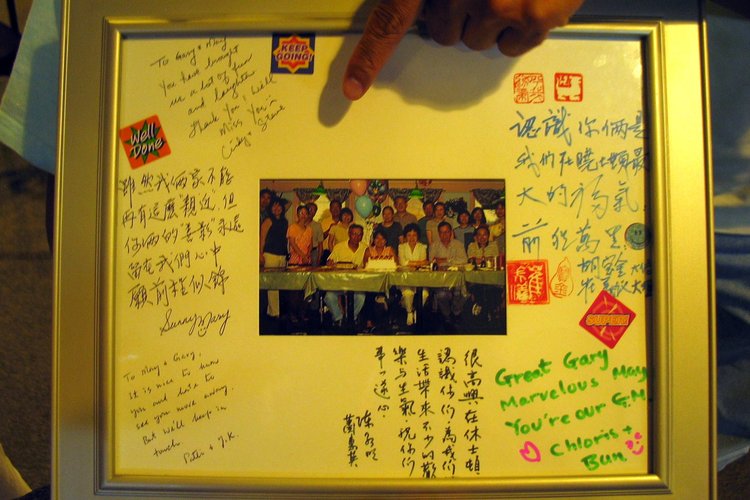 To Gary & May
You have brought
us a lot of fun
and laughter
Thank You, We'll
Miss You
Cindy +
Steve
KEEP
GOING!
Well
Done
雖然我倆家不能
再有這麼親近,但
你倆的"善影"永遠
留在我們心中
願前程似錦
Sunny Mary
To May & Gary,
it is nice to know
you and hate to
see you move away.
But we'll keep in
touch
Peter + J.K.
認識你倆是
我們在曉士頓最
大的福氣
前程萬里
SUPER!
很高興在休士頓
認識你們,為我們
生活帶來不少的歡
樂与生氣,祝你們
Great Gary
Marvelous May
You're our G.M.
Chloris +
Bun